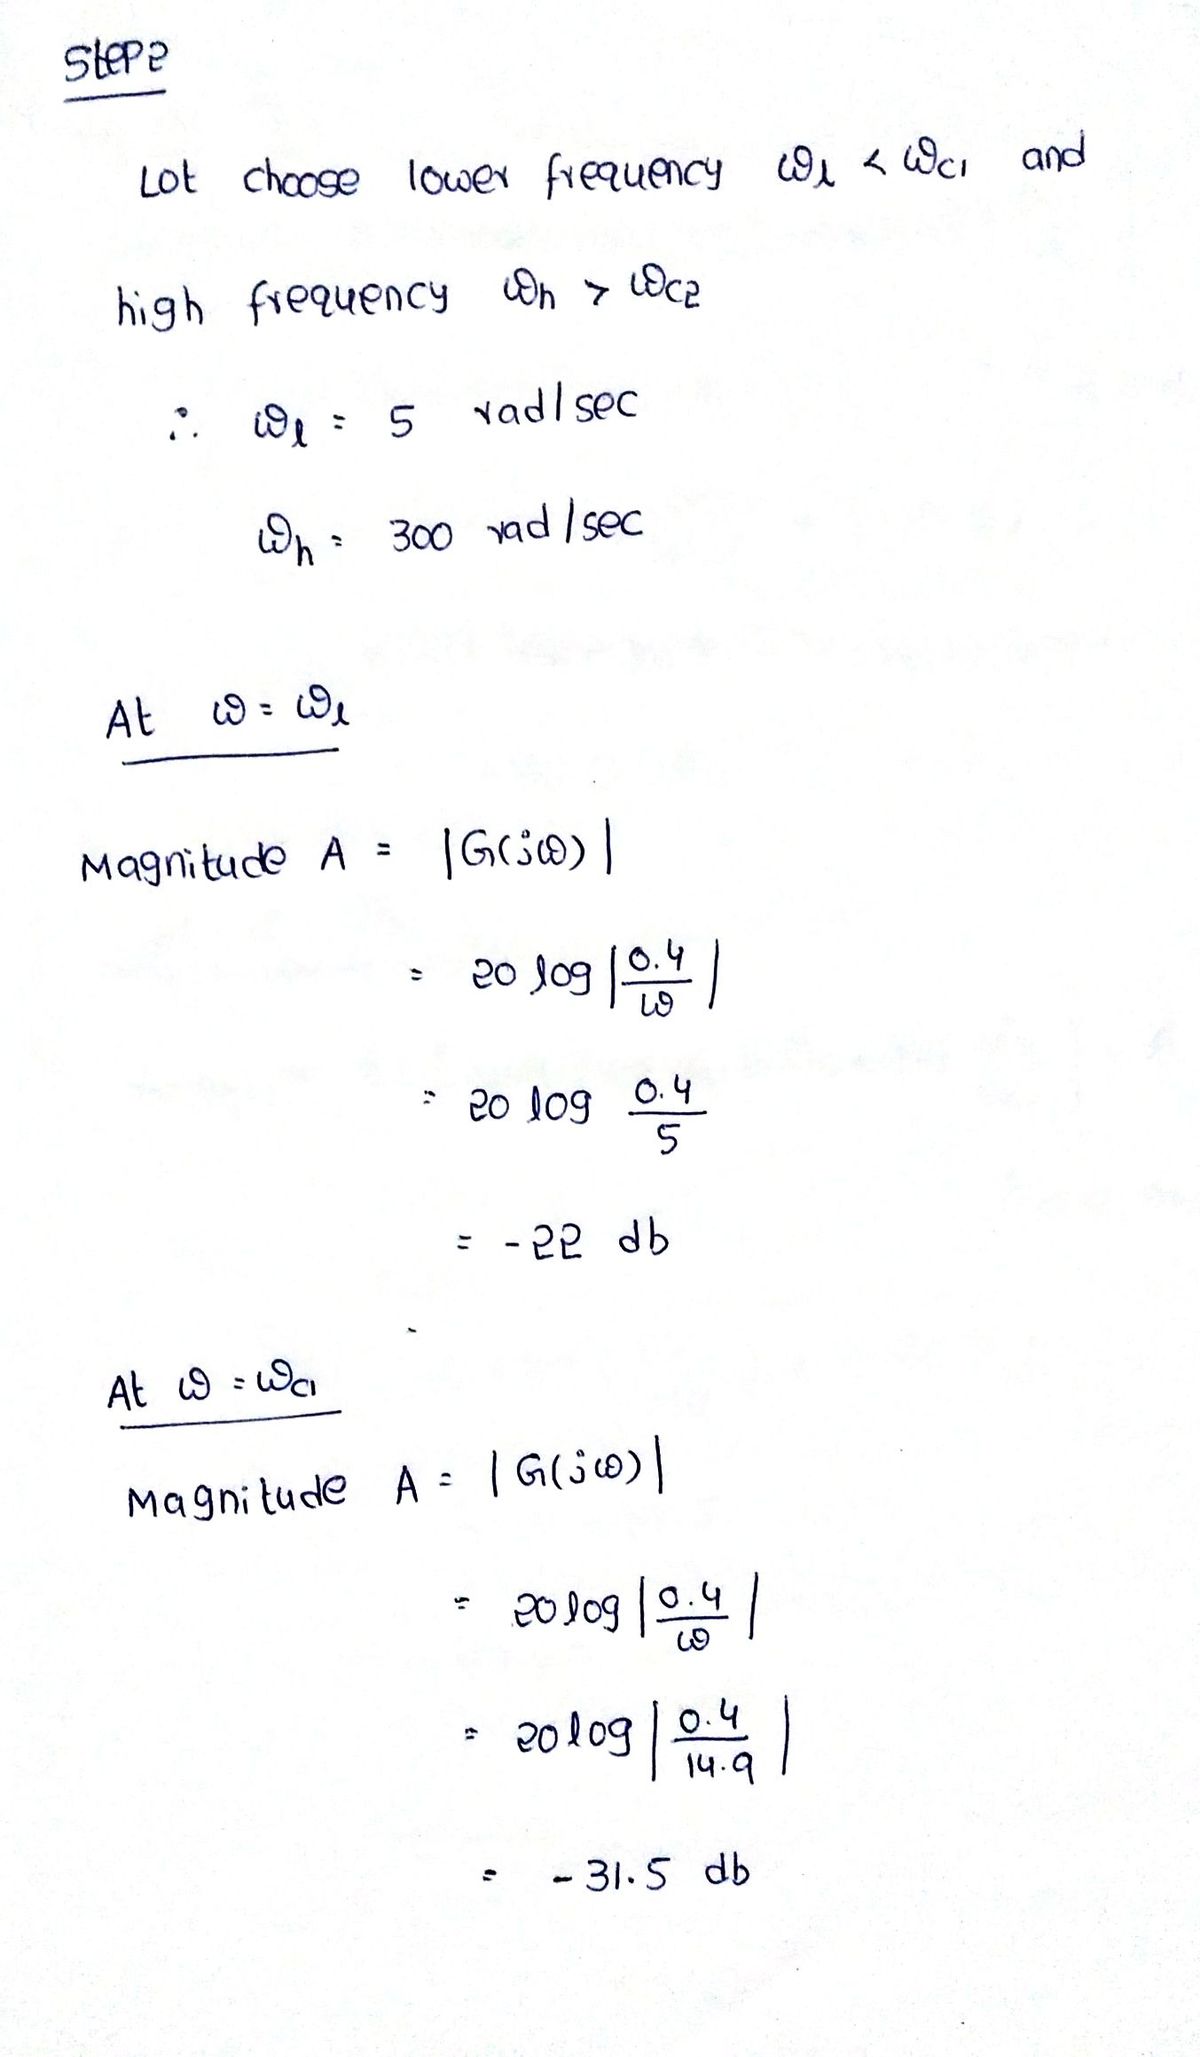 Step2
Lot choose lower frequency ωl < ωc1 and
high frequency ωh > ωc2
∴ ωl = 5 rad/sec
ωh = 300 rad/sec
At ω = ωl
Magnitude A = |G(jω)|
= 20 log |0.4/ω|
= 20 log 0.4/5
= -22 db
At ω = ωc1
Magnitude A = |G(jω)|
= 20 log |0.4/ω|
= 20 log |0.4/14.9|
= -31.5 db